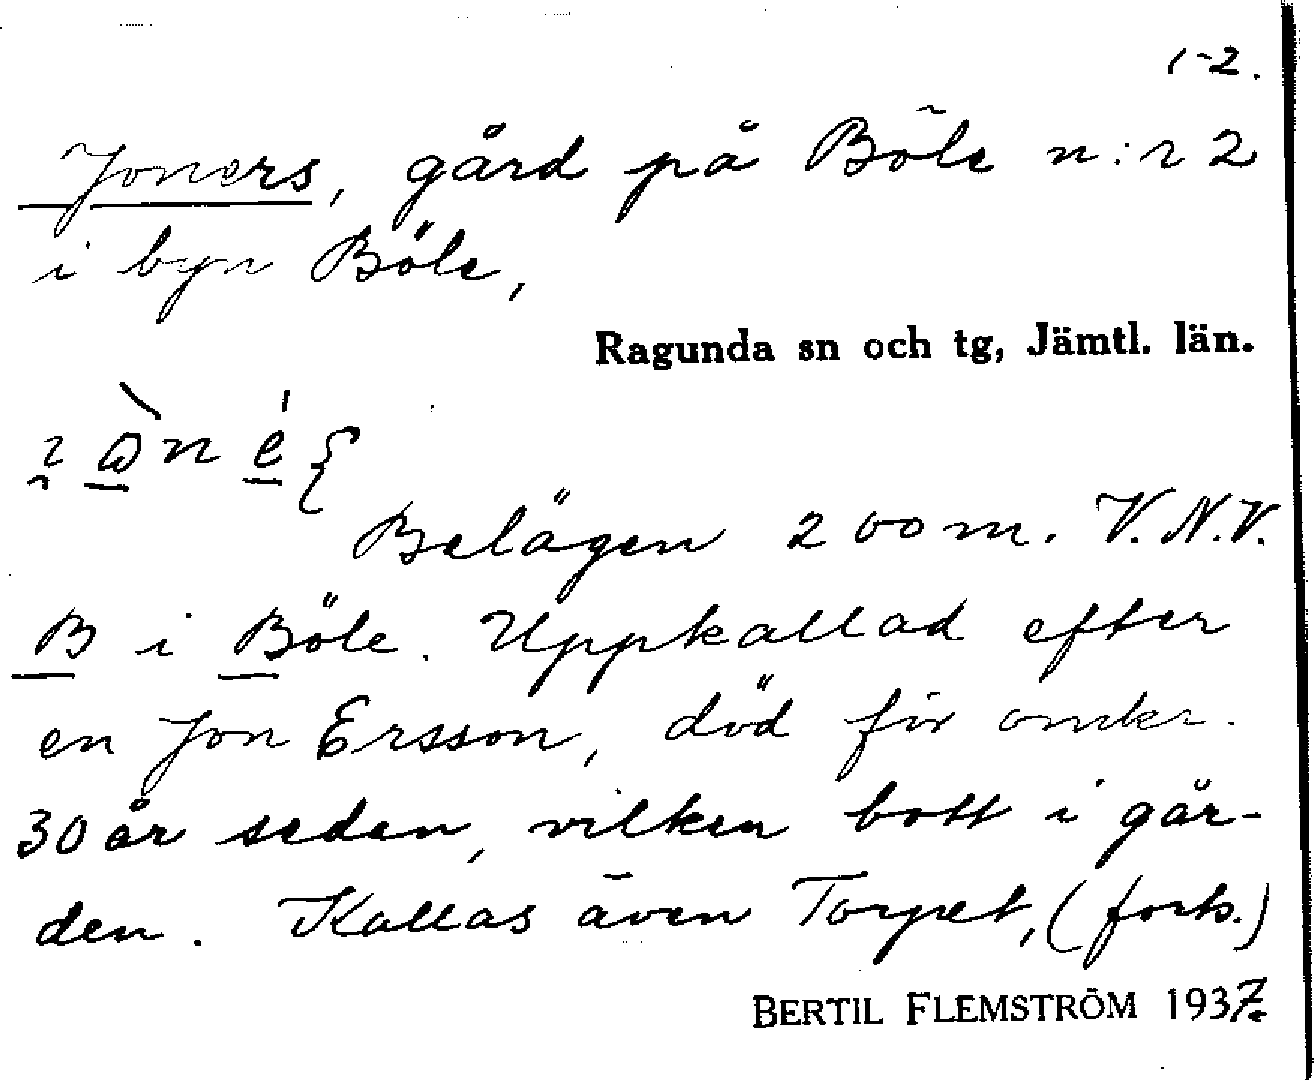 1-2.
Joners, gård på Böle n:r 2
i byn Böle,
Ragunda sn och tg, Jämtl. län.
Belägen 200 m. V.N.V.
B i Böle. Uppkallad efter
en Jon Ersson, död för omkr.
30 år sedan, vilken bott i går-
den. Kallas även Torpet, (forts.)
BERTIL FLEMSTRÖM 1937.